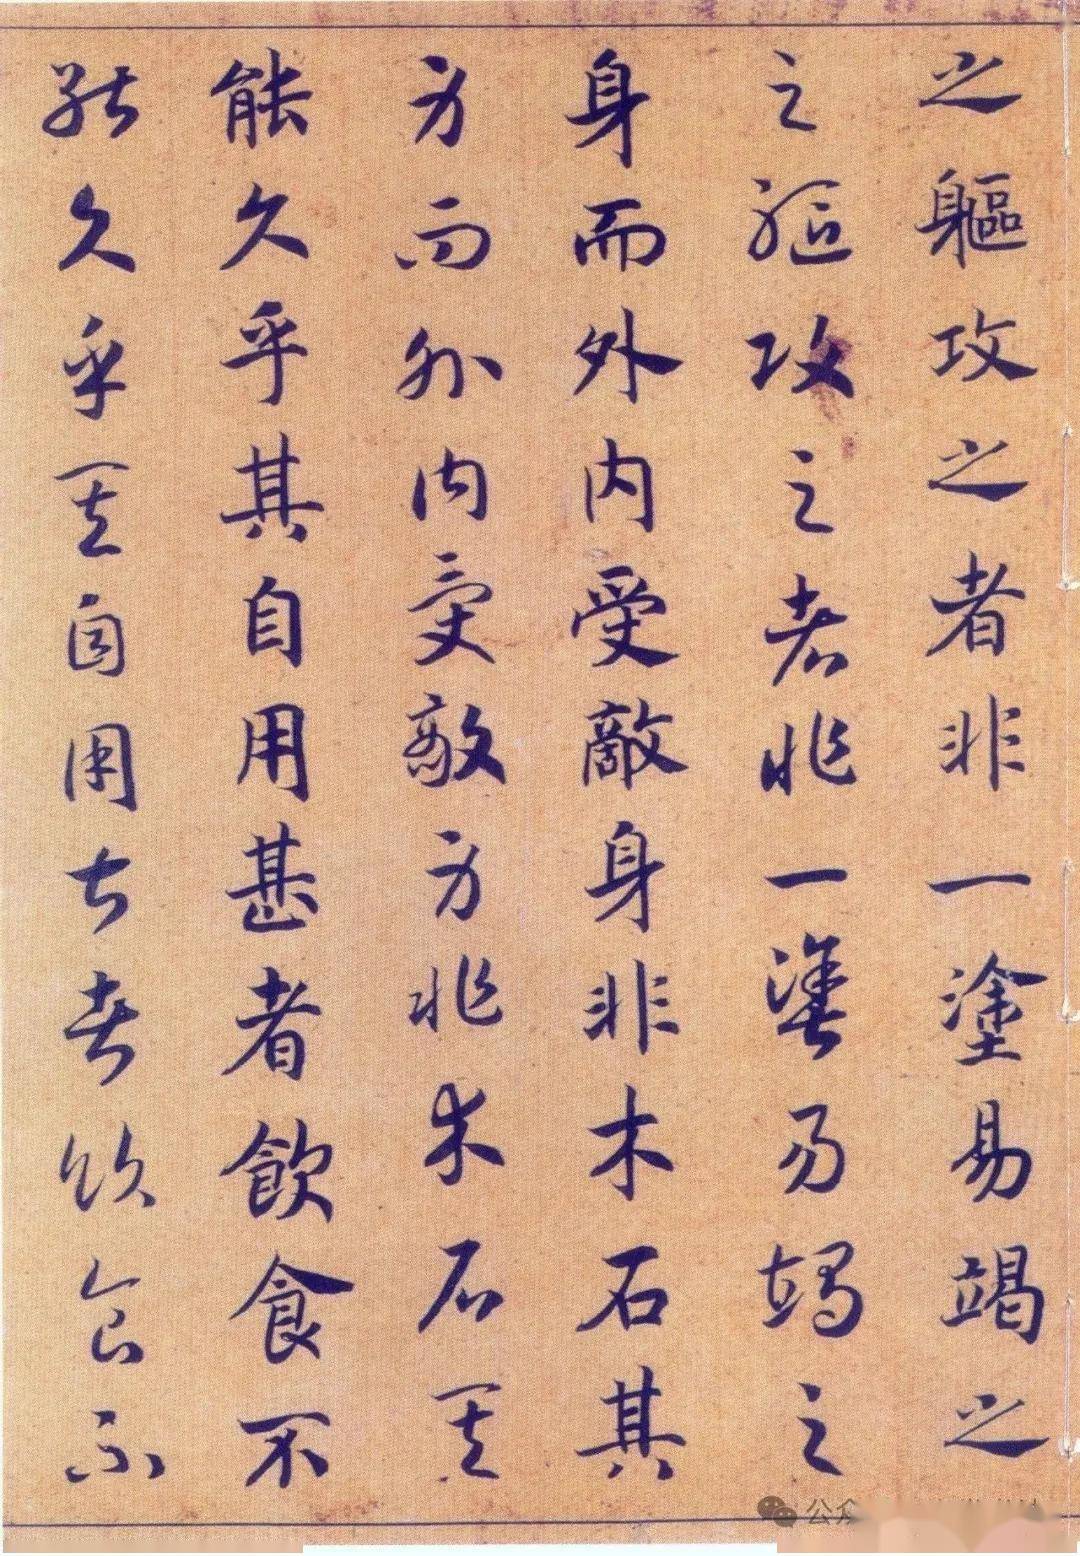 之軀攻之者非一塗易竭之
之軀攻之者非一塗易竭之
身而外內受敵身非木石其
身而外內受敵身非木石其
能久乎其自用甚者飲食不
能久乎其自用甚者飲食不
公众